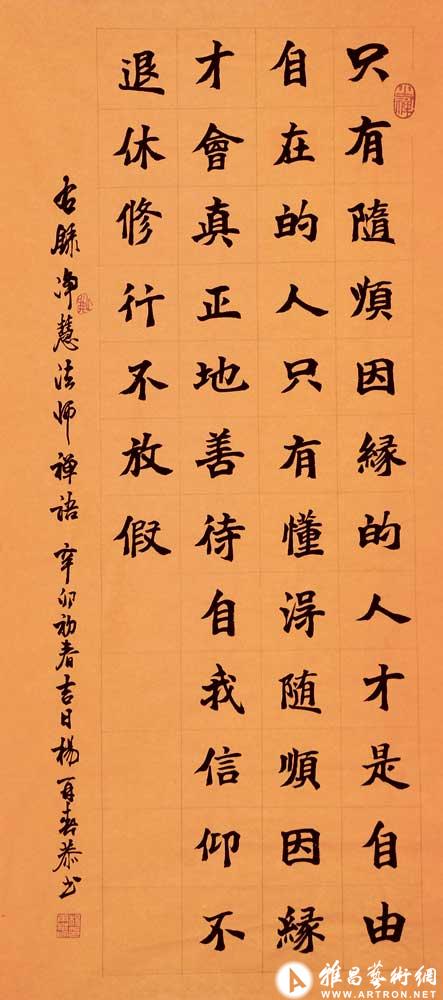 只有隨順因縁的人才是自由
自在的人只有懂得随順因縁
才會真正地善待自我信仰不
退休修行不放假
右録净慧法师禅语 辛卯初春吉日楊再春恭书
雅昌藝術網
WWW.ARTRON.NET